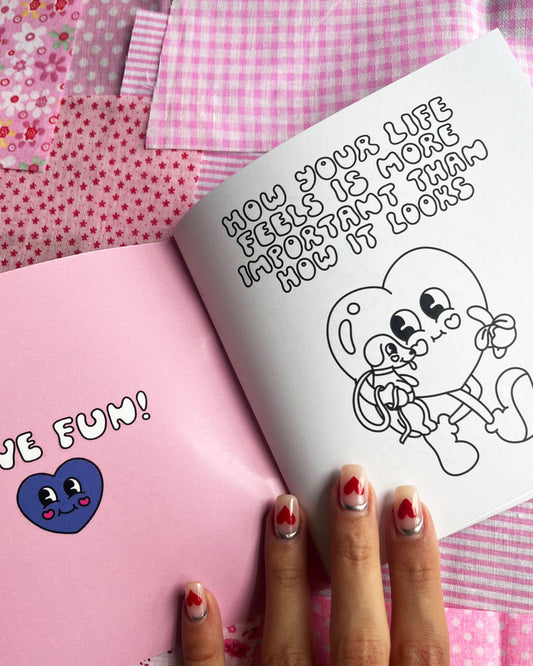 VE FUN!
HOW YOUR LIFE
FEELS IS MORE
IMPORTANT THAN
HOW IT LOOKS